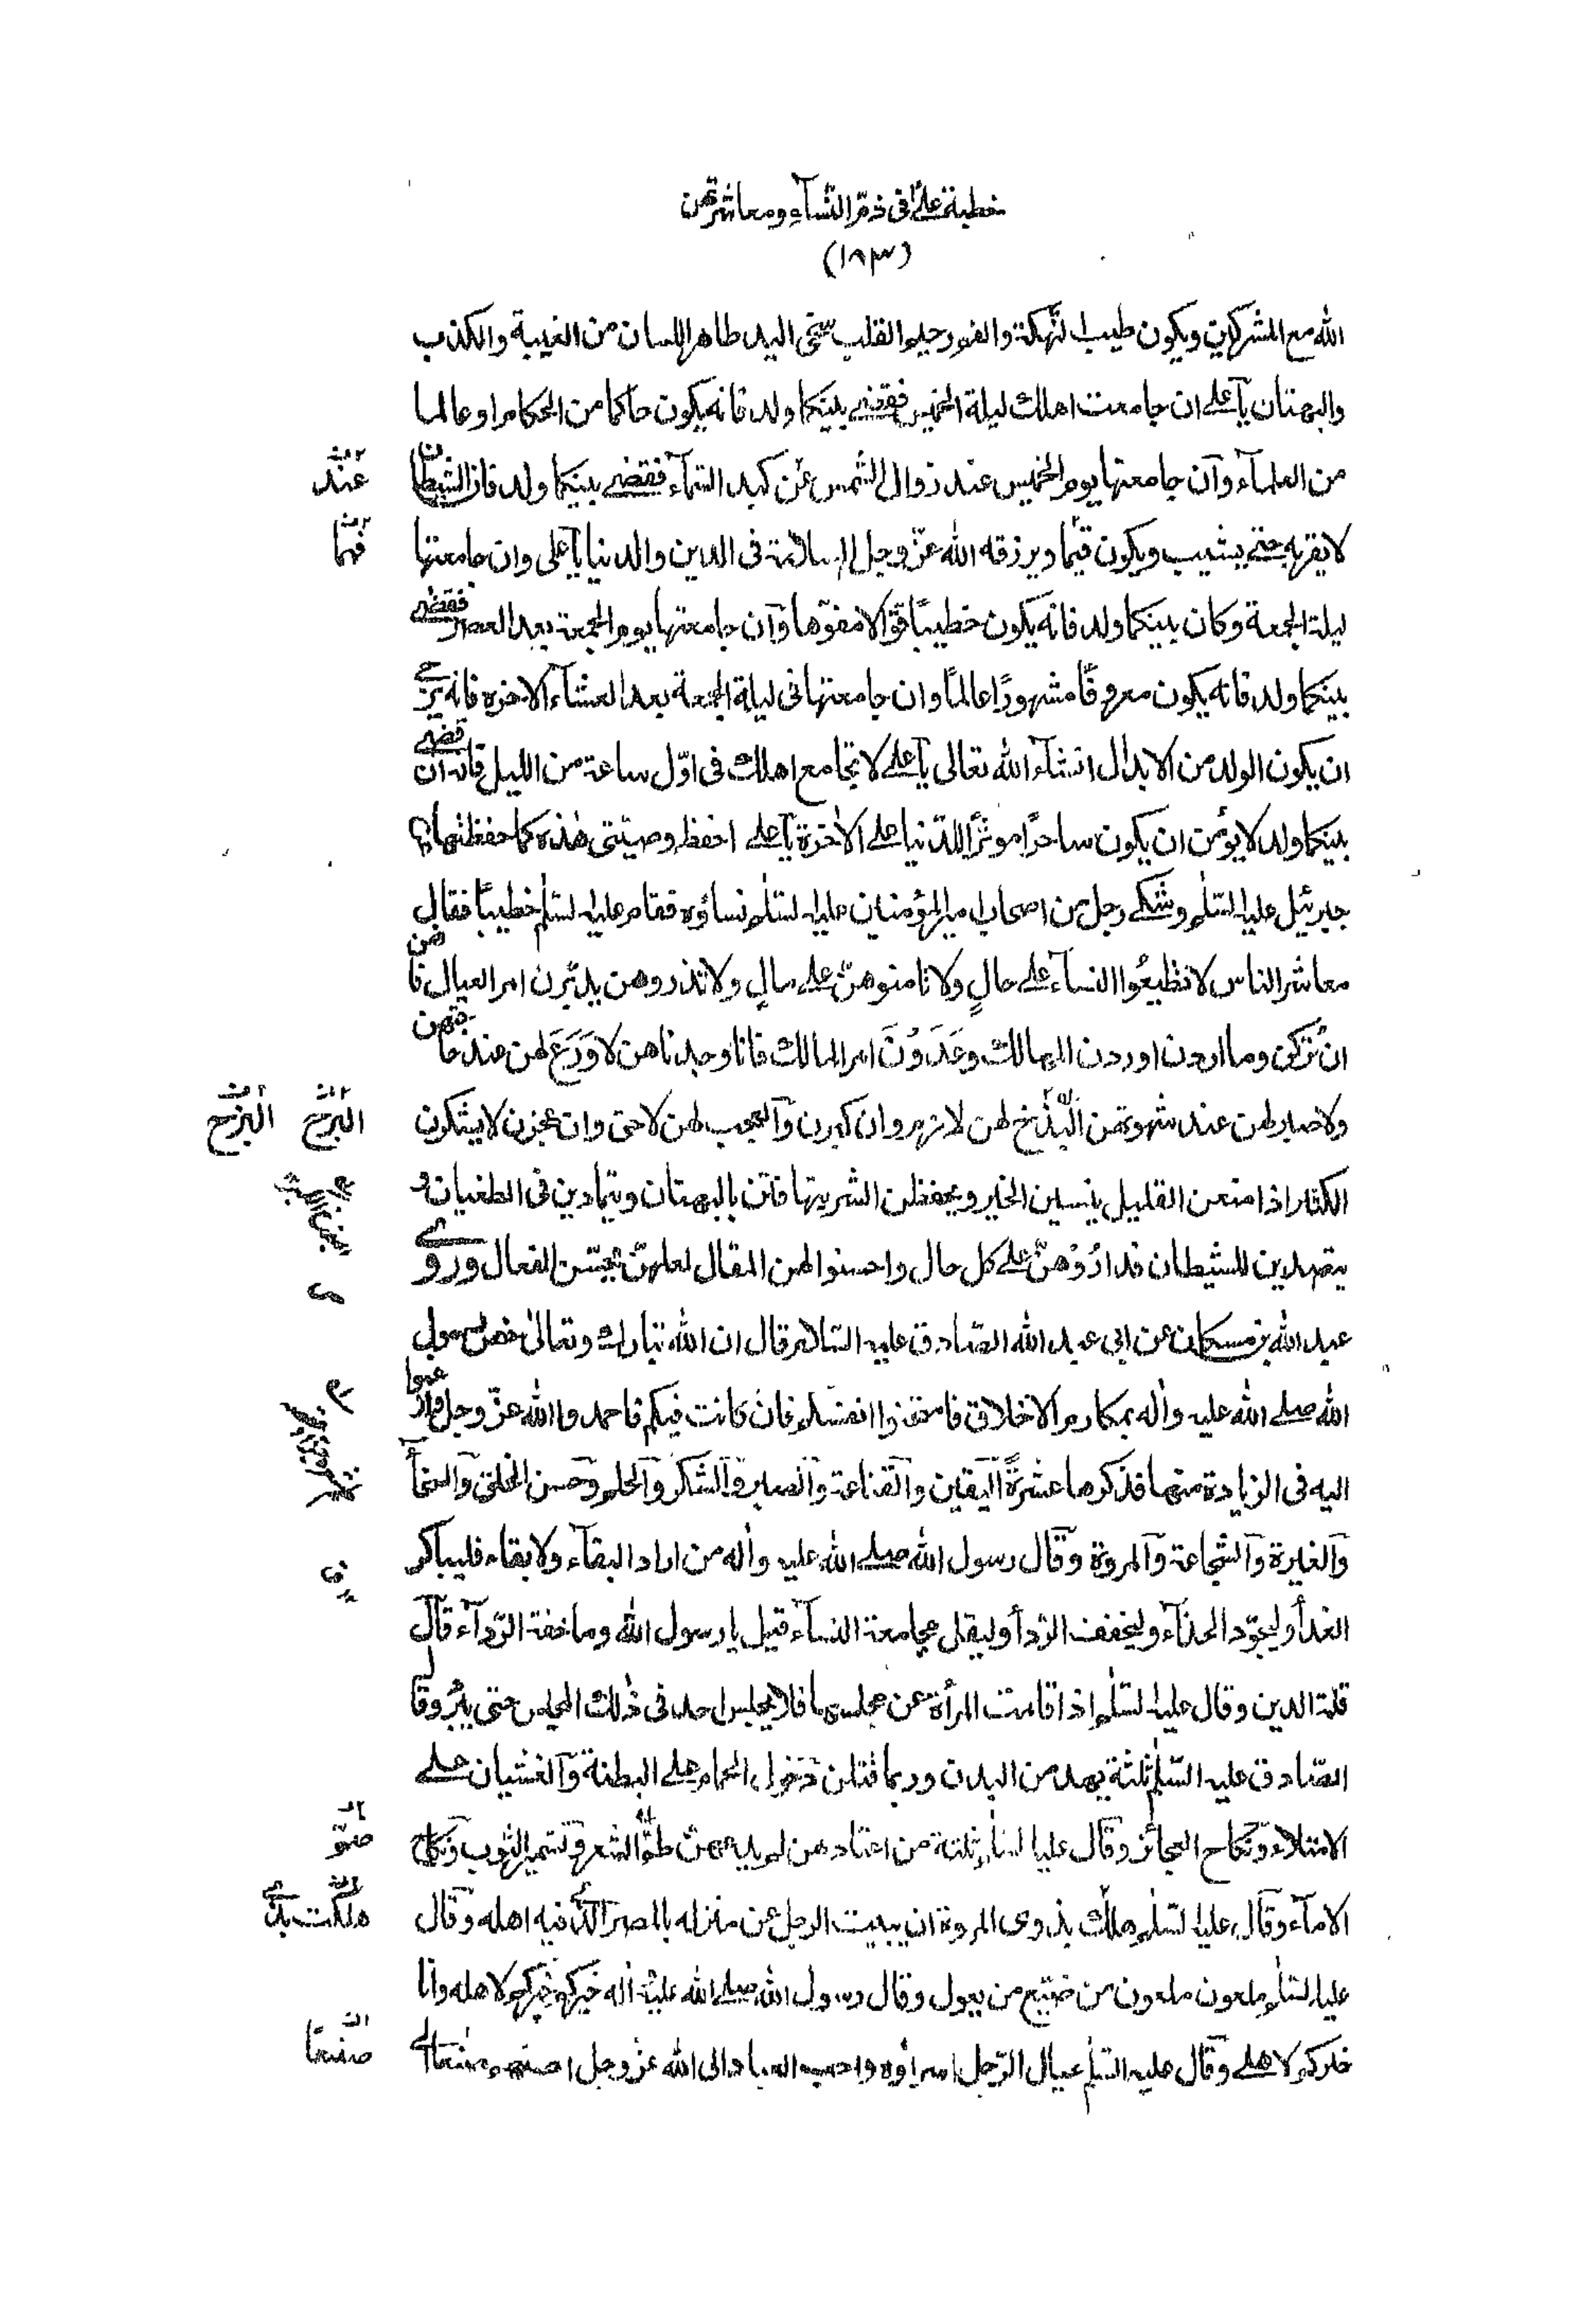 خطبة علىّ فى ذمّ النّسآء ومعاشرتهن
(١٨٣)
الله مع المشركين ويكون طيب النّكهة والفم رحيم القلب سخّى اليد طاهر اللسان من الغيبة والكذب
والبهتان يآ على ان جامعت اهلك ليلة الخميس فقضى بينكما ولد فانه يكون حاكما من الحكام او عالما
من العلمآء وآن جامعتها يوم الخميس عند زوال الشّمس عن كبد السّمآء فقضى بينكما ولد فان الشيطان
لا يقربه حتى يشيب ويكون قيّما ويرزقه الله عزّ وجل السلامة فى الدين والدنيا يآ على وان جامعتها
ليلة الجمعة وكان بينكما ولد فانه يكون خطيبًا قوّالا مفوّها وآن جامعتها يوم الجمعة بعد العصر فقضى
بينكما ولد فانه يكون معروفًا مشهورًا عالمًا وان جامعتها فى ليلة الجمعة بعد العشآء الاخرة فانه يرجى
ان يكون الولد من الابدال انشآء الله تعالى يآ على لا تجامع اهلك فى اوّل ساعة من الليل فانه ان قضى
بينكما ولد لا يؤمن ان يكون ساحرًا موثرًا للدّنيا على الآخرة يآ على احفظ وصيّتى هذه كما حفظتها
جبرئيل عليه السّلم وشكى رجل من اصحاب امير المؤمنين عليه السّلم نساؤه فقام عليه السّلم خطيبًا فقال
معاشر الناس لا تطيعُوا النسآء على حالٍ ولا تامنوهنّ على مالٍ ولا تذروهن يدبّرن امر العيال فانهن
ان تُركن وما اردن اوردن المهالك وعَدَوْنَ امر المالك فانا وجدناهن لا وَرَعَ لهن عند حاجتهن
ولا صبر لهن عند شهوتهن البَذَخ لهن لازم وان كبرن وآلعجب لهن لاحق وان عجزن لا يشكرن
الكثار اذا منعن القليل ينسين الخير ويحفظن الشر يتهافتن بالبهتان ويتمادين فى الطغيان و
يتصدين للشيطان فدارُوهنّ على كل حال واحسنوا لهن المقال لعلهنّ يحسّن الفعال وروى
عبد الله بن مسكان عن ابى عبد الله الصّادق عليه السّلام قال ان الله تبارك وتعالى خصّ رسول
الله صلى الله عليه وآله بمكارم الاخلاق فامتحنوا انفسكم فان كانت فيكم فاحمدوا الله عزّ وجل وارغبوا
اليه فى الزيادة منها فذكرها عشرةً آليقين وآلقناعة وآلصبر وآلشكر وآلحلم وحسن الخلق وآلسّخآء
وآلغيرة وآلشّجاعة وآلمروة وقال رسول الله صلى الله عليه وآله من اراد البقآء ولا بقاء فليباكر
الغدآ وليجوّد الحذآء وليخفف الرّدآ وليقل مجامعة النسآء قيل يا رسول الله وما خفة الرّدآء قال
قلة الدين وقال عليه السّلم اذا قامت المرأة عن مجلسها فلا يجلس احد فى ذلك المجلس حتى يبرُد وقا
الصّادق عليه السّلم ثلثة يهدمن البدن وربما قتلن دخول الحمام على البطنة وآلغشيان على
الامتلاء ونكاح العجائز وقال عليه السّلم ثلثة من اعتادهن لم يدعهن طمّ الشعر وتشمير الثوب ونكاح
الامآء وقال عليه السّلم هلك بذوى المروة ان يبيت الرجل عن منزله بالمصر الّذى فيه اهله وقال
عليه السّلم ملعون ملعون من ضيّع من يعول وقال رسول الله صلى الله عليه وآله خيركم خيركم لاهله وانا
خيركم لاهلى وقال عليه السّلم عيال الرّجل اسراؤه واحب العباد الى الله عز وجل احسنهم صنعًا الى
عند
فهما
البرح
البزخ
هلكت بذى
صنيعًا